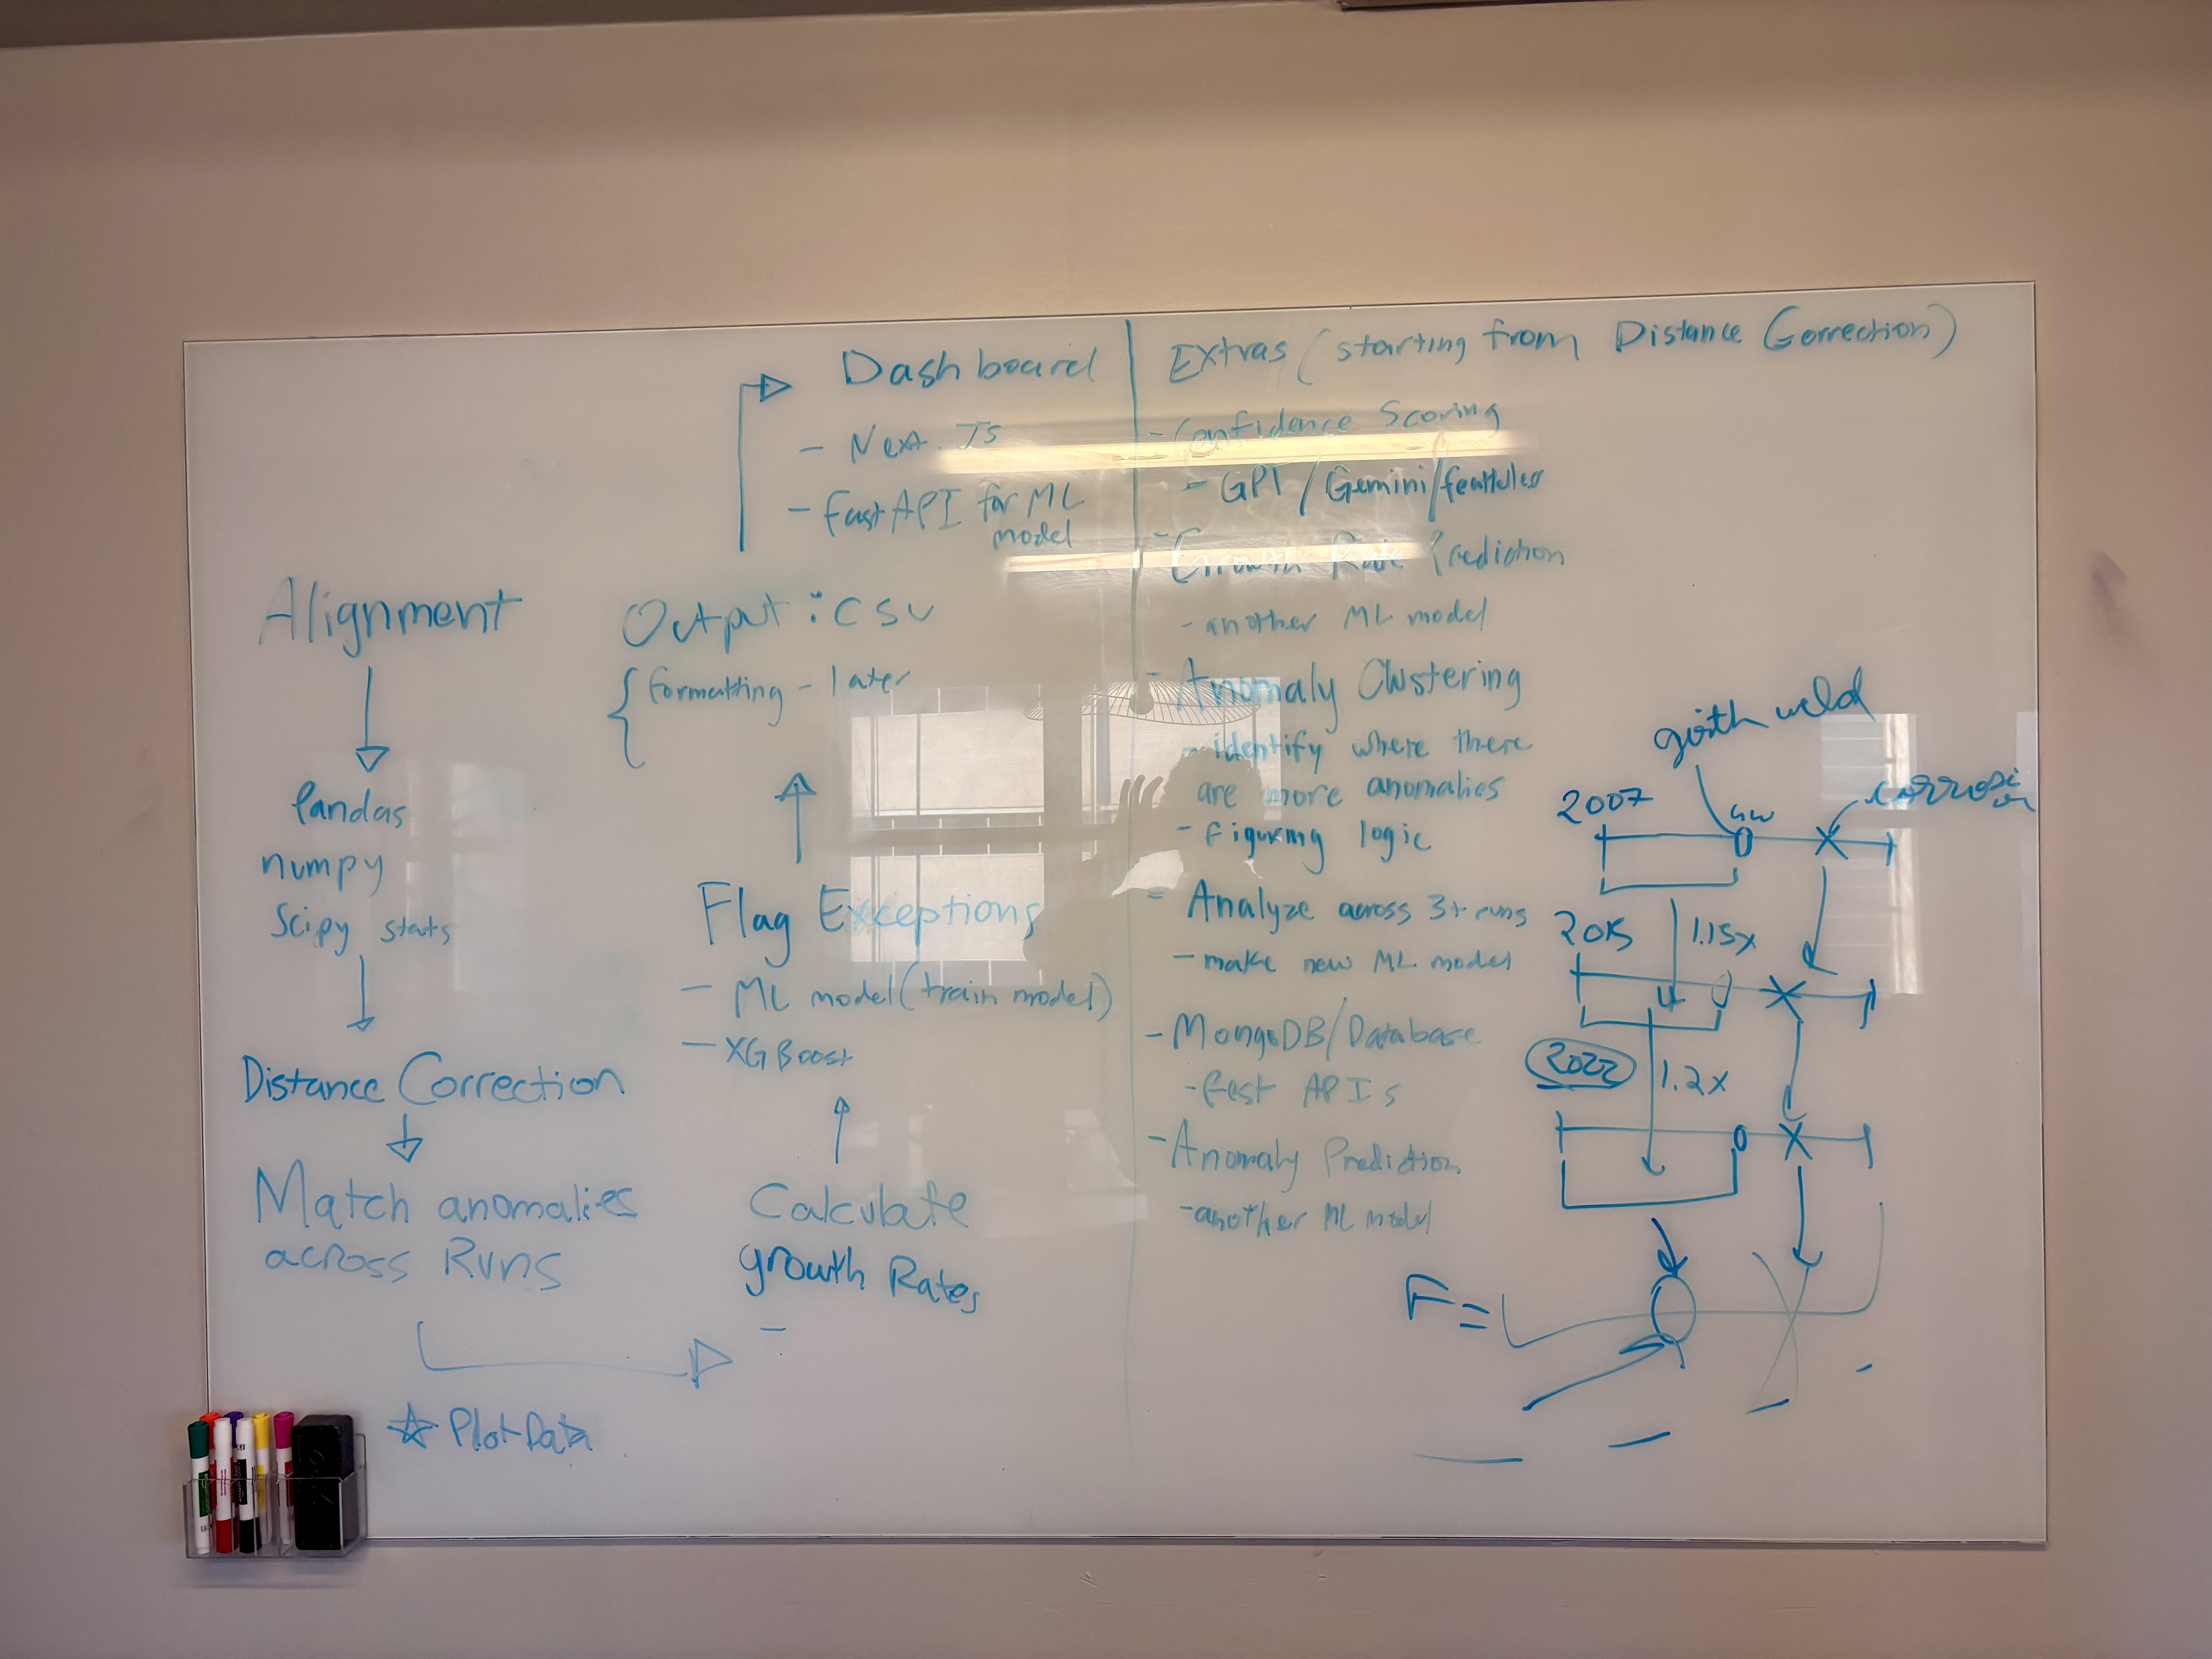 Alignment
Pandas
numpy
Scipy stats
Distance Correction
Match anomalies
across Runs
☆ Plot Data
Calculate
growth Rates
-
Flag Exceptions
- ML model (train model)
- XGBoost
Output : CSV
{ formatting - later
Dashboard
- Next.JS
- FastAPI for ML
model
Extras (starting from Distance Correction)
- Confidence Scoring
- GPT / Gemini /
- Growth Rate Prediction
- another ML model
- Anomaly Clustering
- identify where there
are more anomalies
- Figuring logic
- Analyze across 3+ runs
- make new ML model
- MongoDB/Database
- Fast APIs
- Anomaly Prediction
- another ML model
girth weld
corrosion
2007
GW
2015
1.15x
2022
1.2x
F =